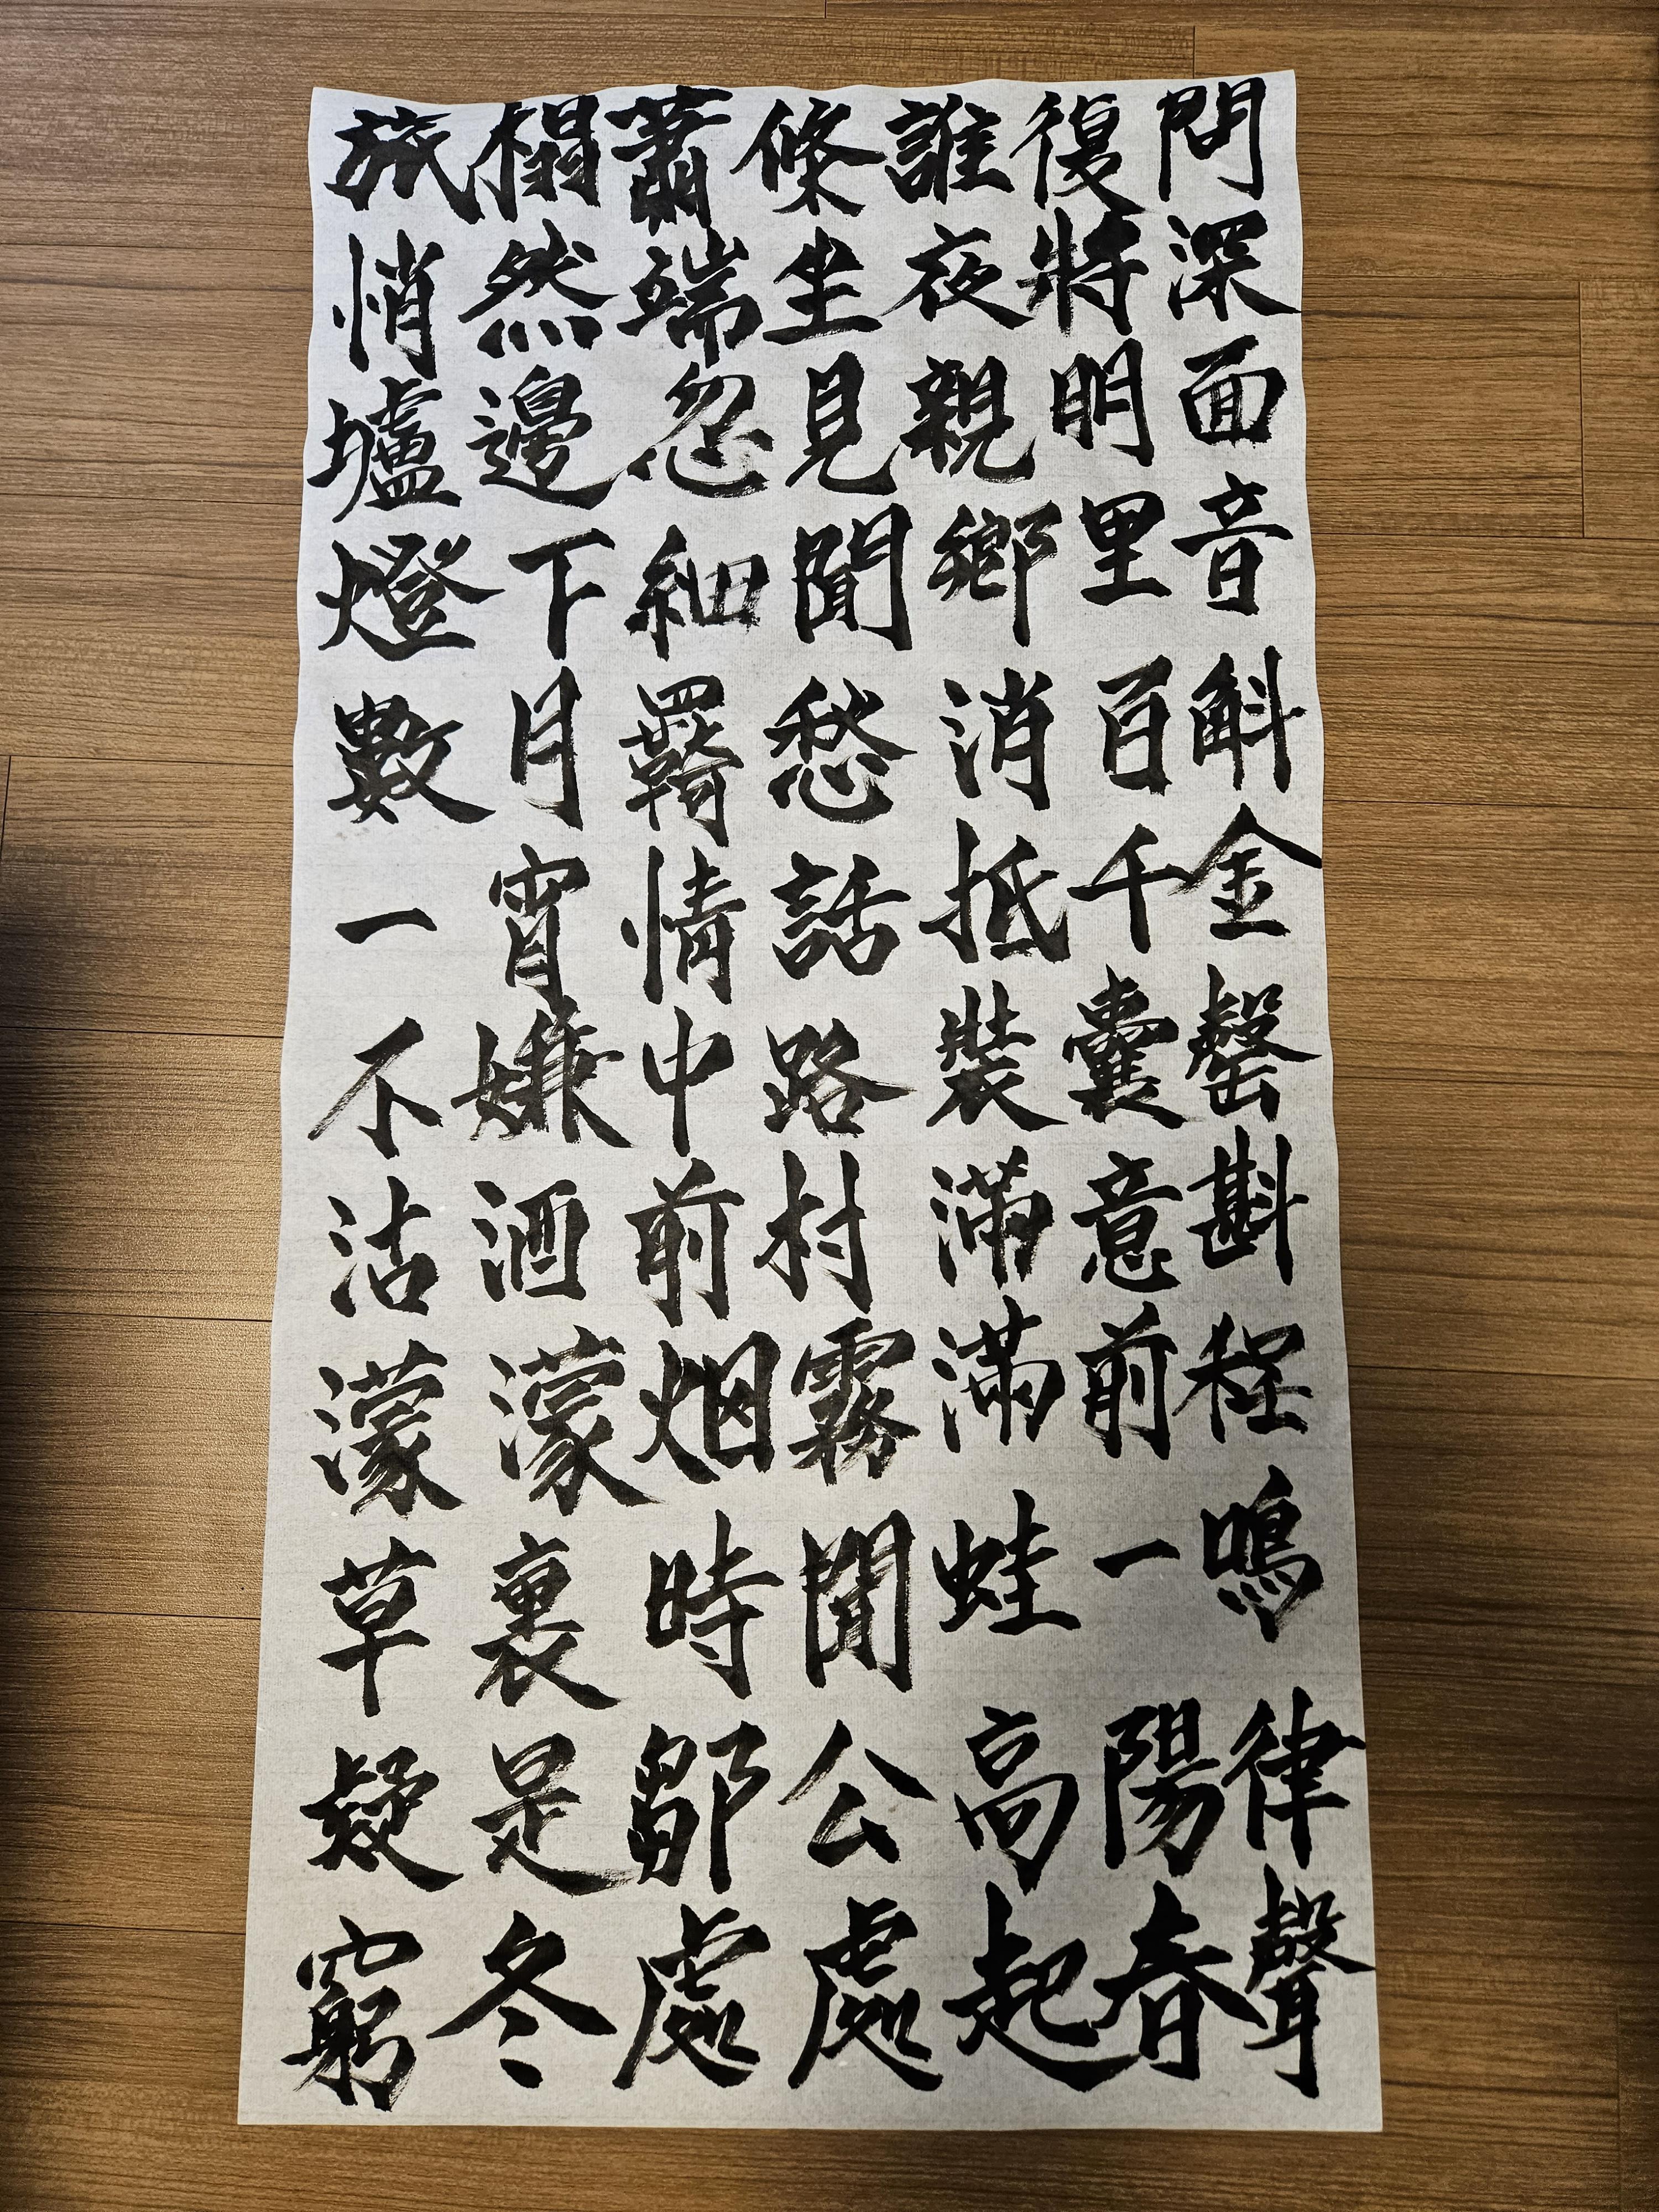 旅榻蕭條誰復問
悄然端坐夜將深
壚邊忽見親明面
燈下細聞鄉里音
數月羇愁消百斛
一宵情話抵千金
不嫌中路裝囊罄
沽酒前村滿意斟
濛濛烟霧滿前程
草裏時聞蛙一鳴
疑是鄒公高陽律
窮冬處處起春聲